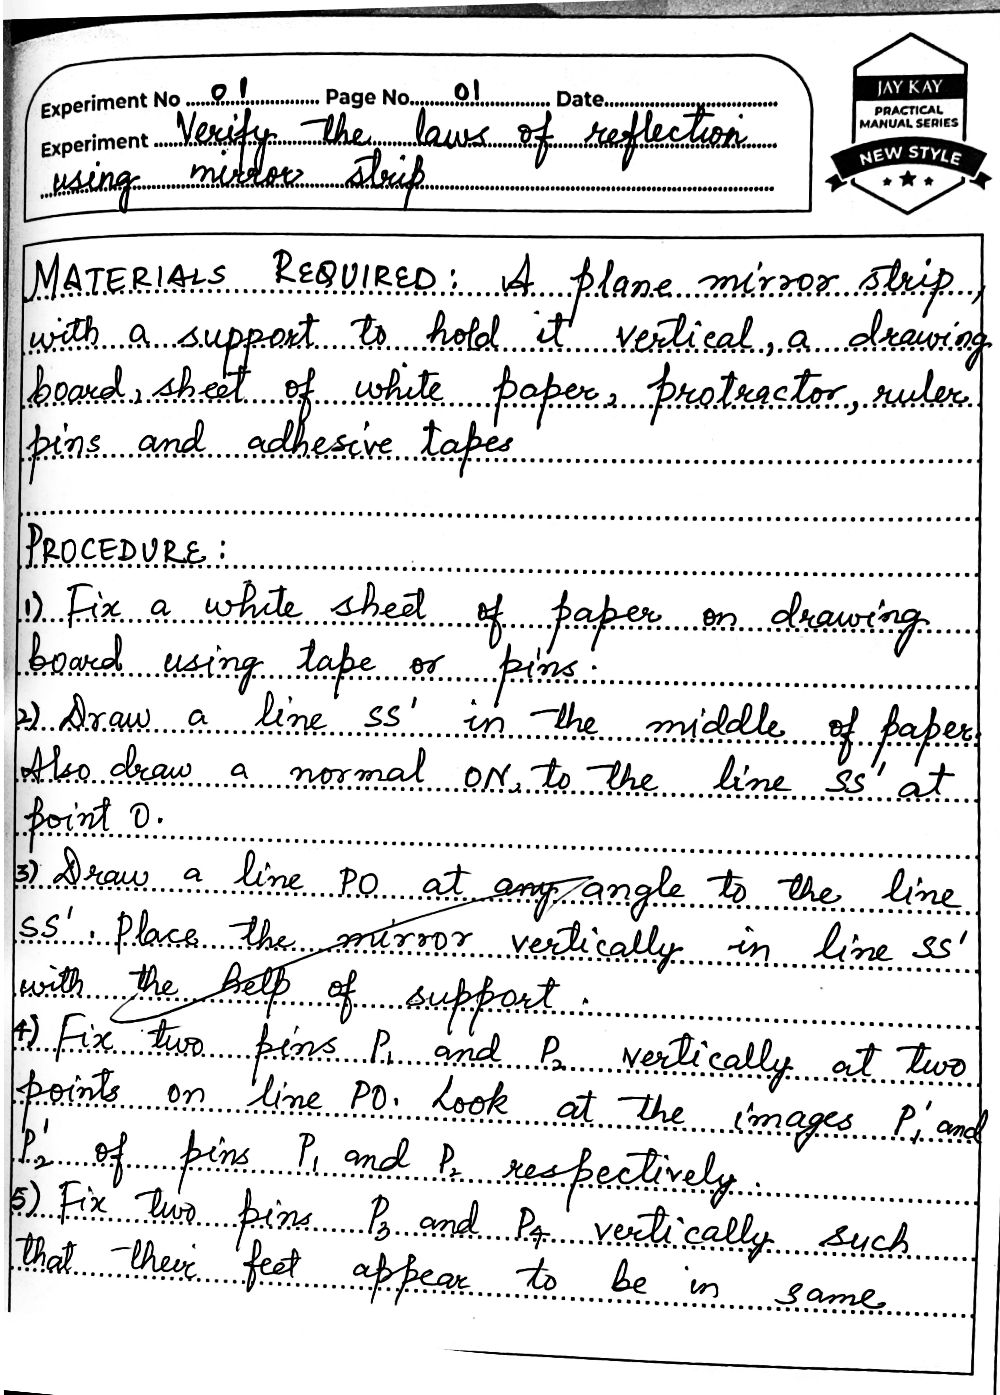 Experiment No ...01... Page No...01... Date...
Experiment ...Verify the laws of reflection
using mirror strip
JAY KAY
PRACTICAL
MANUAL SERIES
NEW STYLE
MATERIALS REQUIRED: A plane mirror strip,
with a support to hold it vertical, a drawing
board, sheet of white paper, protractor, ruler
pins and adhesive tapes
PROCEDURE:
1) Fix a white sheet of paper on drawing
board using tape or pins.
2) Draw a line SS' in the middle of paper.
Also draw a normal ON, to the line SS' at
point O.
3) Draw a line PO at any angle to the line
SS'. Place the mirror vertically in line SS'
with the help of support.
4) Fix two pins P₁ and P₂ vertically at two
points on line PO. Look at the images P₁' and
P₂' of pins P₁ and P₂ respectively.
5) Fix two pins P₃ and P₄ vertically such
that their feet appear to be in same